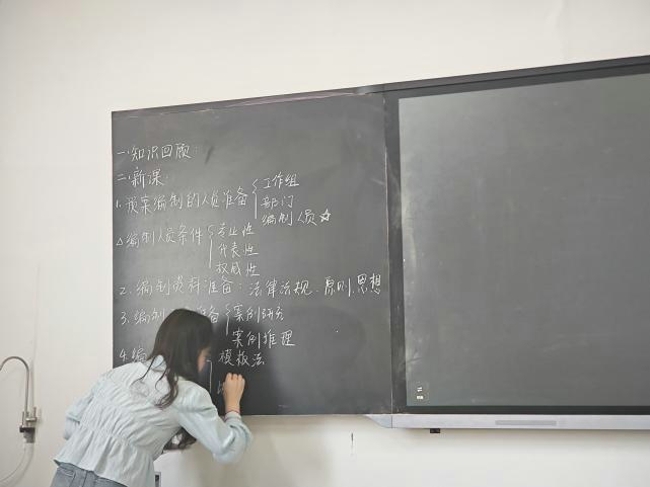 一.知识回顾
二.新课:
1.预案编制的人员准备 工作组
部门
编制人员☆
△编制人员条件 专业性
代表性
权威性
2.编制资料准备:法律法规、原则、思想
3.编制 准备 案例研究
案例推理
4.编 模板法